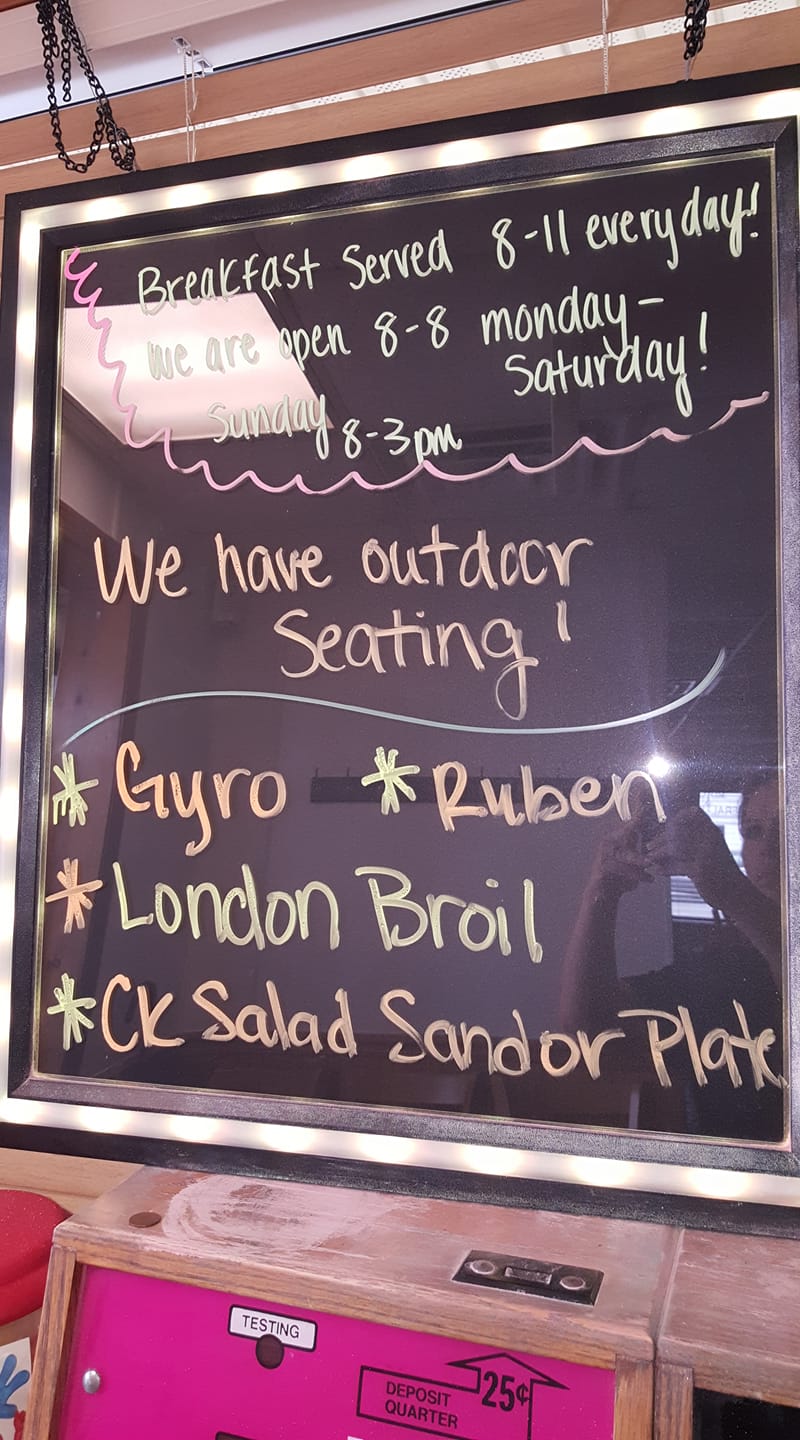 Breakfast Served 8-11 everyday!
We are open 8-8 monday-
Saturday!
Sunday 8-3pm
We have outdoor
Seating!
* Gyro * Ruben
* London Broil
* CK Salad Sand or Plate
TESTING
DEPOSIT
QUARTER
25¢